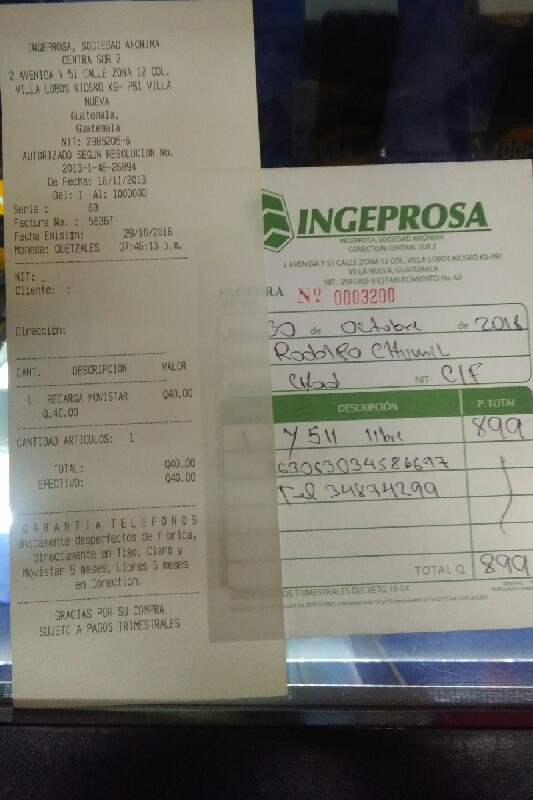 INGEPROSA, SOCIEDAD ANONIMA
CENTRA SUR 2
2 AVENIDA Y 51 CALLE ZONA 12 COL.
VILLA LOBOS KIOSKO K9- PB1 VILLA
NUEVA
Guatemala,
Guatemala
NIT: 2985205-6
AUTORIZADO SEGUN RESOLUCION No.
2013-1-48-26894
De Fecha: 16/11/2013
Del: 1 Al: 1000000
Serie : 63
Factura No. : 58367
Fecha Emision: 29/10/2016
Moneda: QUETZALES 07:46:13 p.m.
NIT: _
Cliente: :
Direccion:
CANT. DESCRIPCION VALOR
1 RECARGA MOVISTAR Q40.00
Q.40.00
CANTIDAD ARTICULOS: 1
TOTAL: Q40.00
EFECTIVO: Q40.00
GARANTIA TELEFONOS
Unicamente desperfectos de fabrica,
directamente en Tigo, Claro y
Movistar 5 meses, Libres 3 meses
en Conection.
GRACIAS POR SU COMPRA
SUJETO A PAGOS TRIMESTRALES
INGEPROSA
INGEPROSA, SOCIEDAD ANÓNIMA
CONECTION, CENTRAL SUR 2
2 AVENIDA Y 51 CALLE ZONA 12 COL. VILLA LOBOS KIOSKO K9-PB1
VILLA NUEVA, GUATEMALA
NIT: 2985205-6 ESTABLECIMIENTO No. 63
FACTURA Nº 0003200
30 de octubre de 2016
Rodolfo
Ciudad NIT C/F
DESCRIPCIÓN P. TOTAL
1 Y 511 libre 899
Tel 34874299
TOTAL Q. 899
TRIMESTRALES DECRETO 18-04